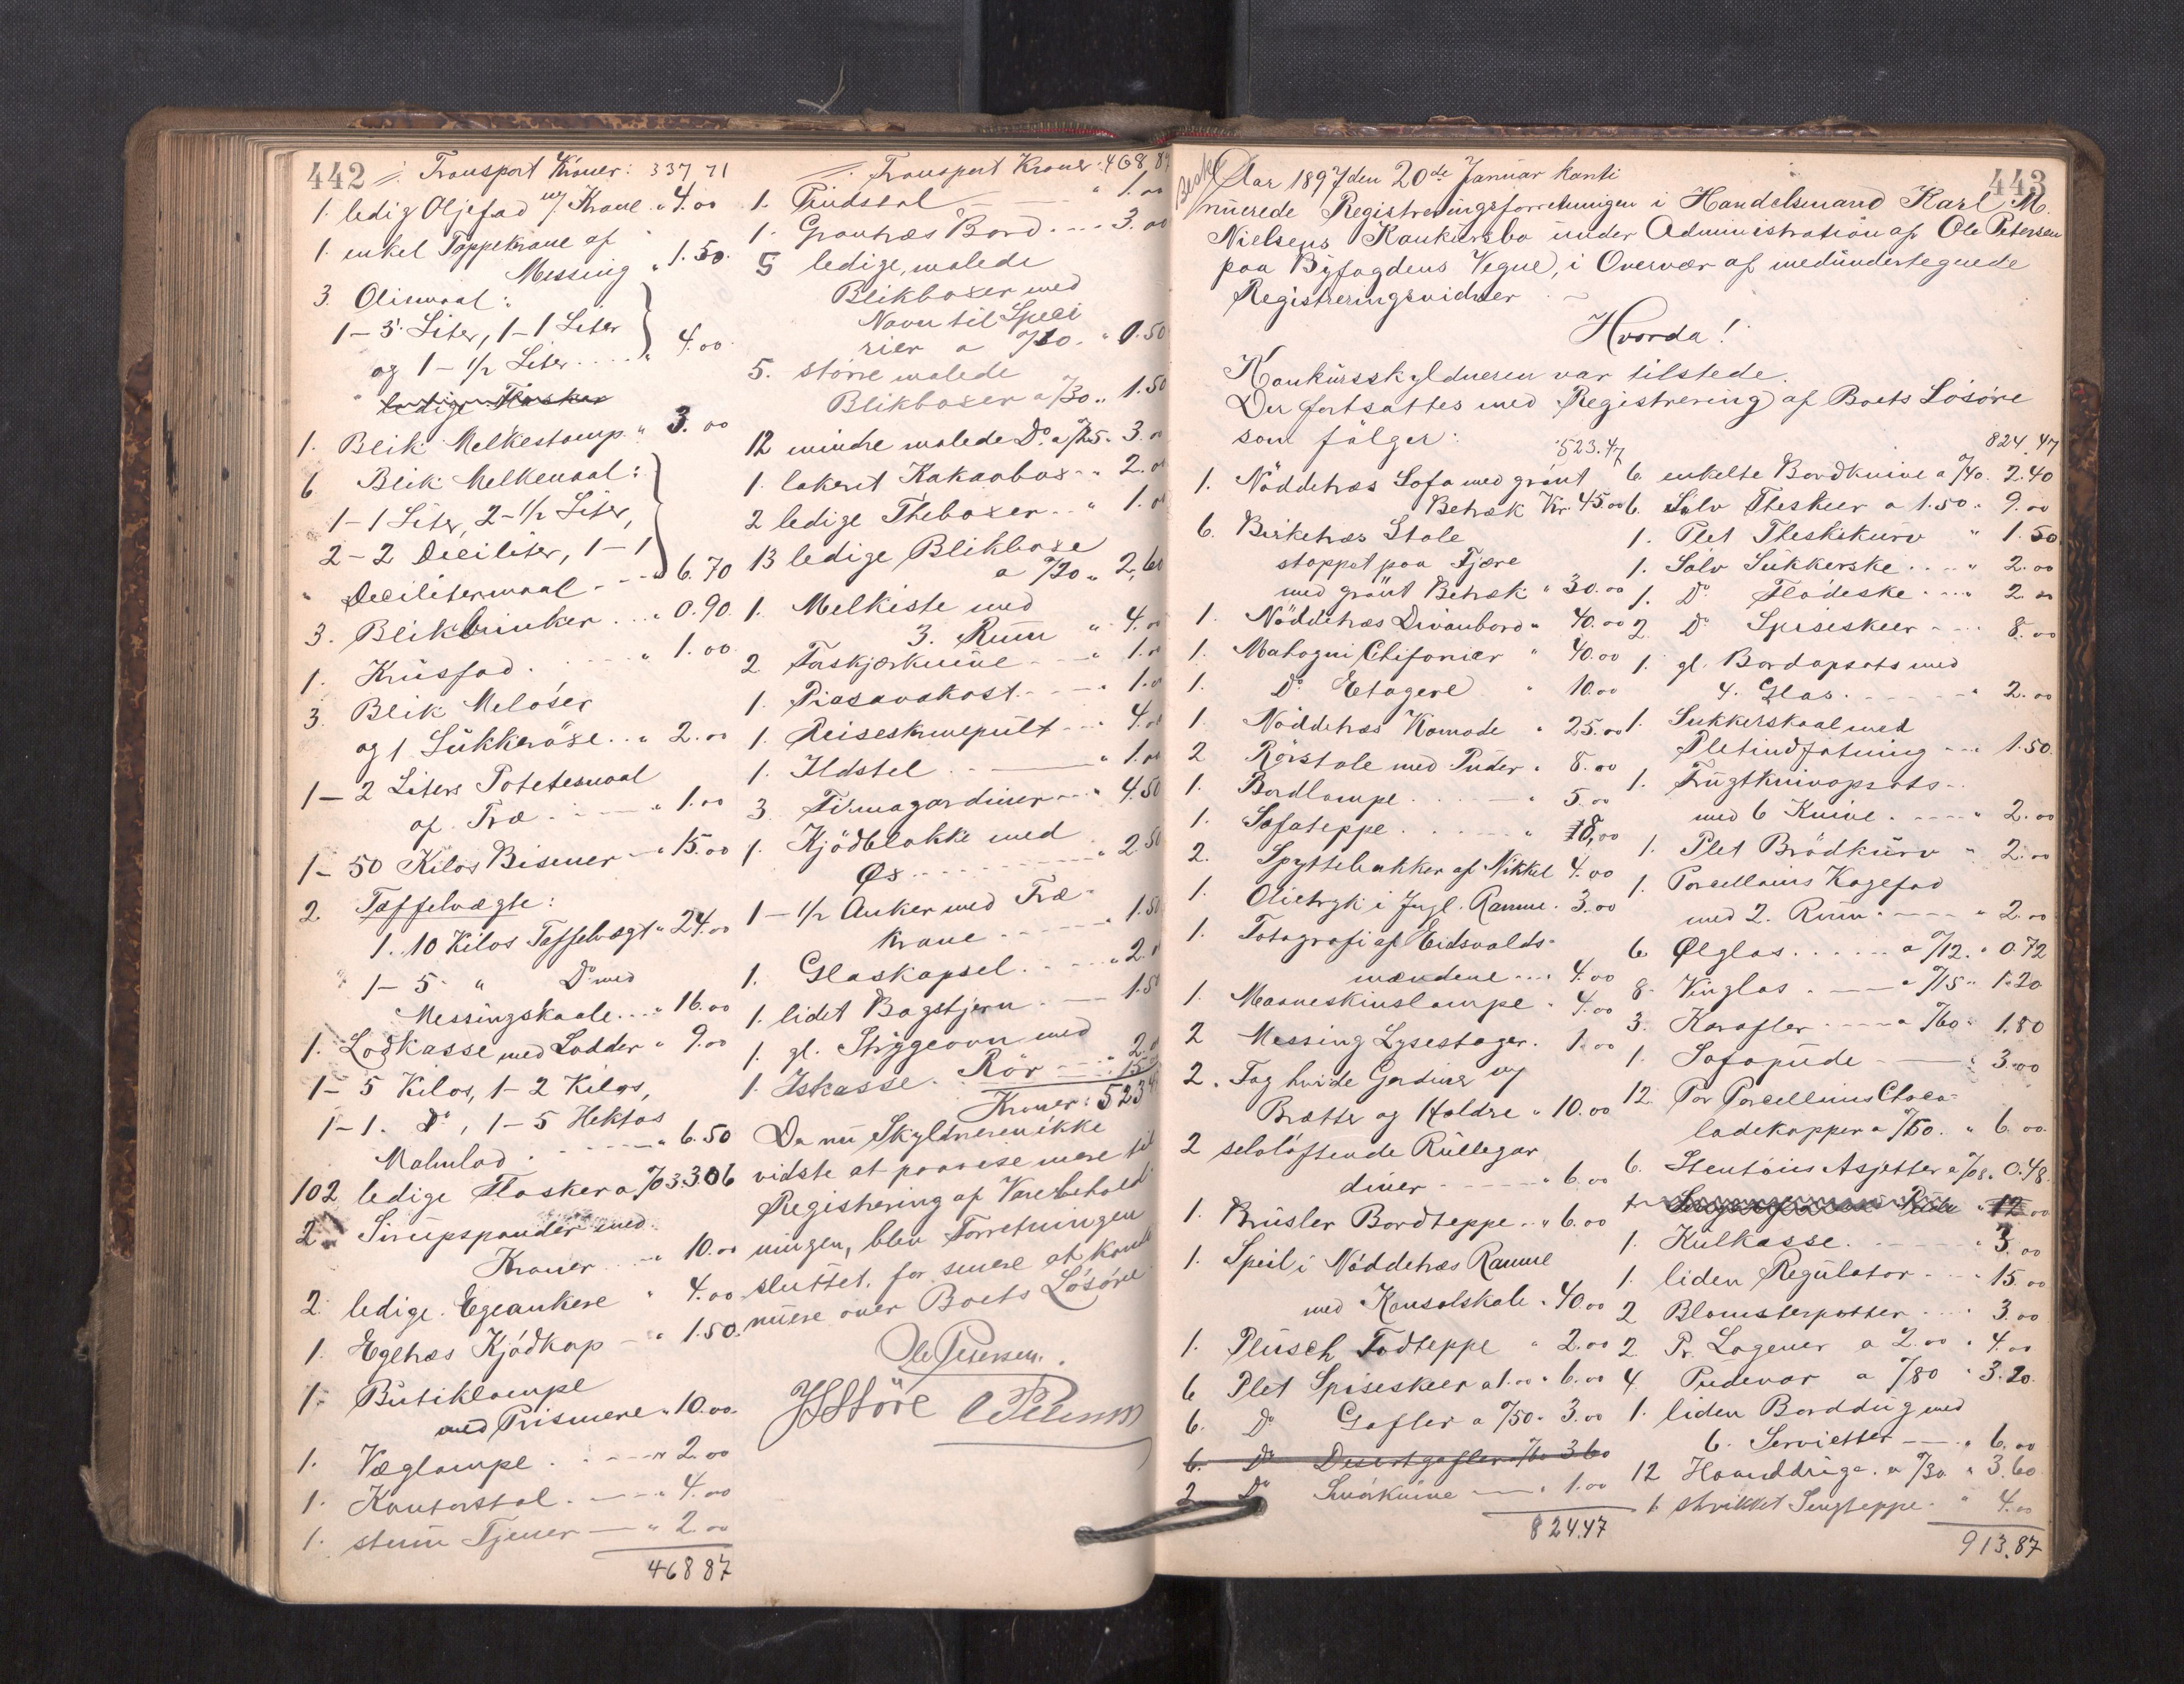 442
Transport Kroner: 337 71
1. ledig Oljefad m/ Krane " 4.00
1. enkel Tappekrane af
Messing " 1.50.
3. Oliemaal:
1-5 Liter, 1-1 Liter
og 1-1/2 Liter.... " 4.00
ledige Flasker
1. Blik Melkestamp " 3.00
6 Blik Melkemaal:
1-1 Liter, 2-1/2 Liter,
2-2 Deciliter, 1-1
Decilitermaal - - - " 6.70
3. Blik ... " 0.90
1. Krusfad. " 1.00
3. Blik Meløser
og 1 Sukkerøse... " 2.00
1-2 Liters Potetesmaal
af Træ. " 1.00
1-50 Kilos Bismer - " 15.00
2. Taffelvægte:
1. 10 Kilos Taffelvægt " 24.00
1-5 " Do med
Messingskaale... " 16.00
1. Lodkasse med Lodder " 9.00
1-5 Kilos, 1-2 Kilos,
1-1. Do, 1-5 Hektos
Malmlod. " 6.50
102 ledige Flasker a %03. 3.06
2. Sirupspander med
Kraner " 10.00
2. ledige Egeankere " 4.00
1. Egetræs Kjødkop - " 1.50.
1. Butiklampe
med Prismere " 10.00.
1. Væglampe. " 2.00
1. Kontorstol. " 4.00
1. stum Tjener - " 2.00
468 87
Transport Kroner: 468,87
1. Pindstol " 1.00
1. Grantræs Bord.... 3.00
5 ledige, malede
Blikboxer med
Navn til Speci
rier a %10. " 0.50
5. större malede
Blikboxer a %30 " 1.50
12 mindre malede Do. a %25 " 3.00
1. lakeret Kakaobox " 2.00
2 ledige Theboxer.. " 1.00
13 ledige Blikboxe
a %20 " 2,60
1. Melkiste med
3. Rum " 4.00
2 Forskjærknive " 1.00
1. Piasavakost. " 1.00
1. Reiseskrivepult " 4.00
1. Ildstel " 1.00
3. Firmagardiner " 4.50
1. Kjødblokke med
Øx " 2.50
1-1/2 Anker med Træ-
krane " 1.50
1. Glaskapsel. " 2.00
1. lidet Bagstjern. 1.50
1. gl. Strygeovn med
Rør " 2.00
1. Iskasse. 15.00
Kroner: 523,47
Da nu Skyldneren ikke
vidste at paavise mere til
Registrering af Varebehold
ningen, blev Forretningen
sluttet, for senere at konti
nuere over Boets Løsøre
Ole Petersen.
443
Aar 1897 den 20de Januar konti
nuerede Registreringsforretningen i Handelsmand Karl M.
Nielsens Konkursbo under Administration af Ole Petersen
paa Byfogdens Vegne, i Overvær af medundertegnede
Registreringsvidner
Hvorda!
Konkursskyldneren var tilstede.
Der fortsattes med Registrering af Boets Løsøre
som følger:
523.47
1. Nøddetræs Sofa med grönt
Betræk Kr. 45.00
6. Birketræs Stole
stoppet paa Fjære
med grönt Betræk " 30.00
1. Nøddetræs Divanbord " 40.00
1. Mahogni Chifonier " 40.00
1. Do Etagere " 10.00
1. Nøddetræs Komode " 25.00
2 Rörstole med Puder " 8.00
1. Bordlampe. " 5.00
1. Sofateppe. " 18,00
2. Spyttebakker af Nikkel 4.00
1. Olietryk i Jugl. Ramme. 3.00
1. Fotografi af Eidsvolds-
mændene.... 4.00
1. Maaneskinslampe " 4.00
2 Messing Lysestager. 1.00
2. Fag hvide Gardiner og
Brætter og Holdre " 10.00
2 selvløftende Rullegar
diner " 6.00
1. Brüsler Bordteppe.. " 6.00
1. Speil i Nøddetræs Ramme
med Konsolskab " 40.00
1. Plüsch Fodteppe " 2.00
6 Plet Spiseskeer a 1.00 " 6.00
6. Do Gafler a %50 " 3.00
6. Do Desertgafler %60 3.60
2. Do Smørknive " 1.00
824.47
824.47
6. enkelte Bordknive a %40. 2.40
6. Sølv Theskeer a 1.50 " 9.00
1. Plet Theskekurv " 1.50
1. Sølv Sukkerske.... " 2.00
1. Do Flødeske.... 2.00
2 Do Spiseskeer 8.00
1. gl. Bordopsats med
4. Glas. " 2.00
1. Sukkerskaal med
Pletindfatning " 1.50
1. Frugtknivopsats-
med 6 Knive. " 2.00
1. Plet Brødkurv " 2.00
1. Porcellains Kagefad
med 2. Rum. " 2.00
6 Ølglas...... a %12. " 0.72
8. Vinglas. a %15 " 1.20
3. Karafler a %60 " 1.80
1. Sofapude " 3.00
12. Par Porcellains Choco-
ladekopper a %50. " 6.00
6. Stentøis Asjetter a %08 " 0.48
1. Kulkasse. " 3.00
1. liden Regulator " 15.00
2 Blomsterpotter 3.00
2 Pr. Lagener a 2.00 " 4.00
4. Pudevar a %80 " 3.20
1. liden Borddug med
6. Servietter " 6.00
12 Haanddug. a %30 " 3.60
1. strikket Sengteppe " 4.00
913.87